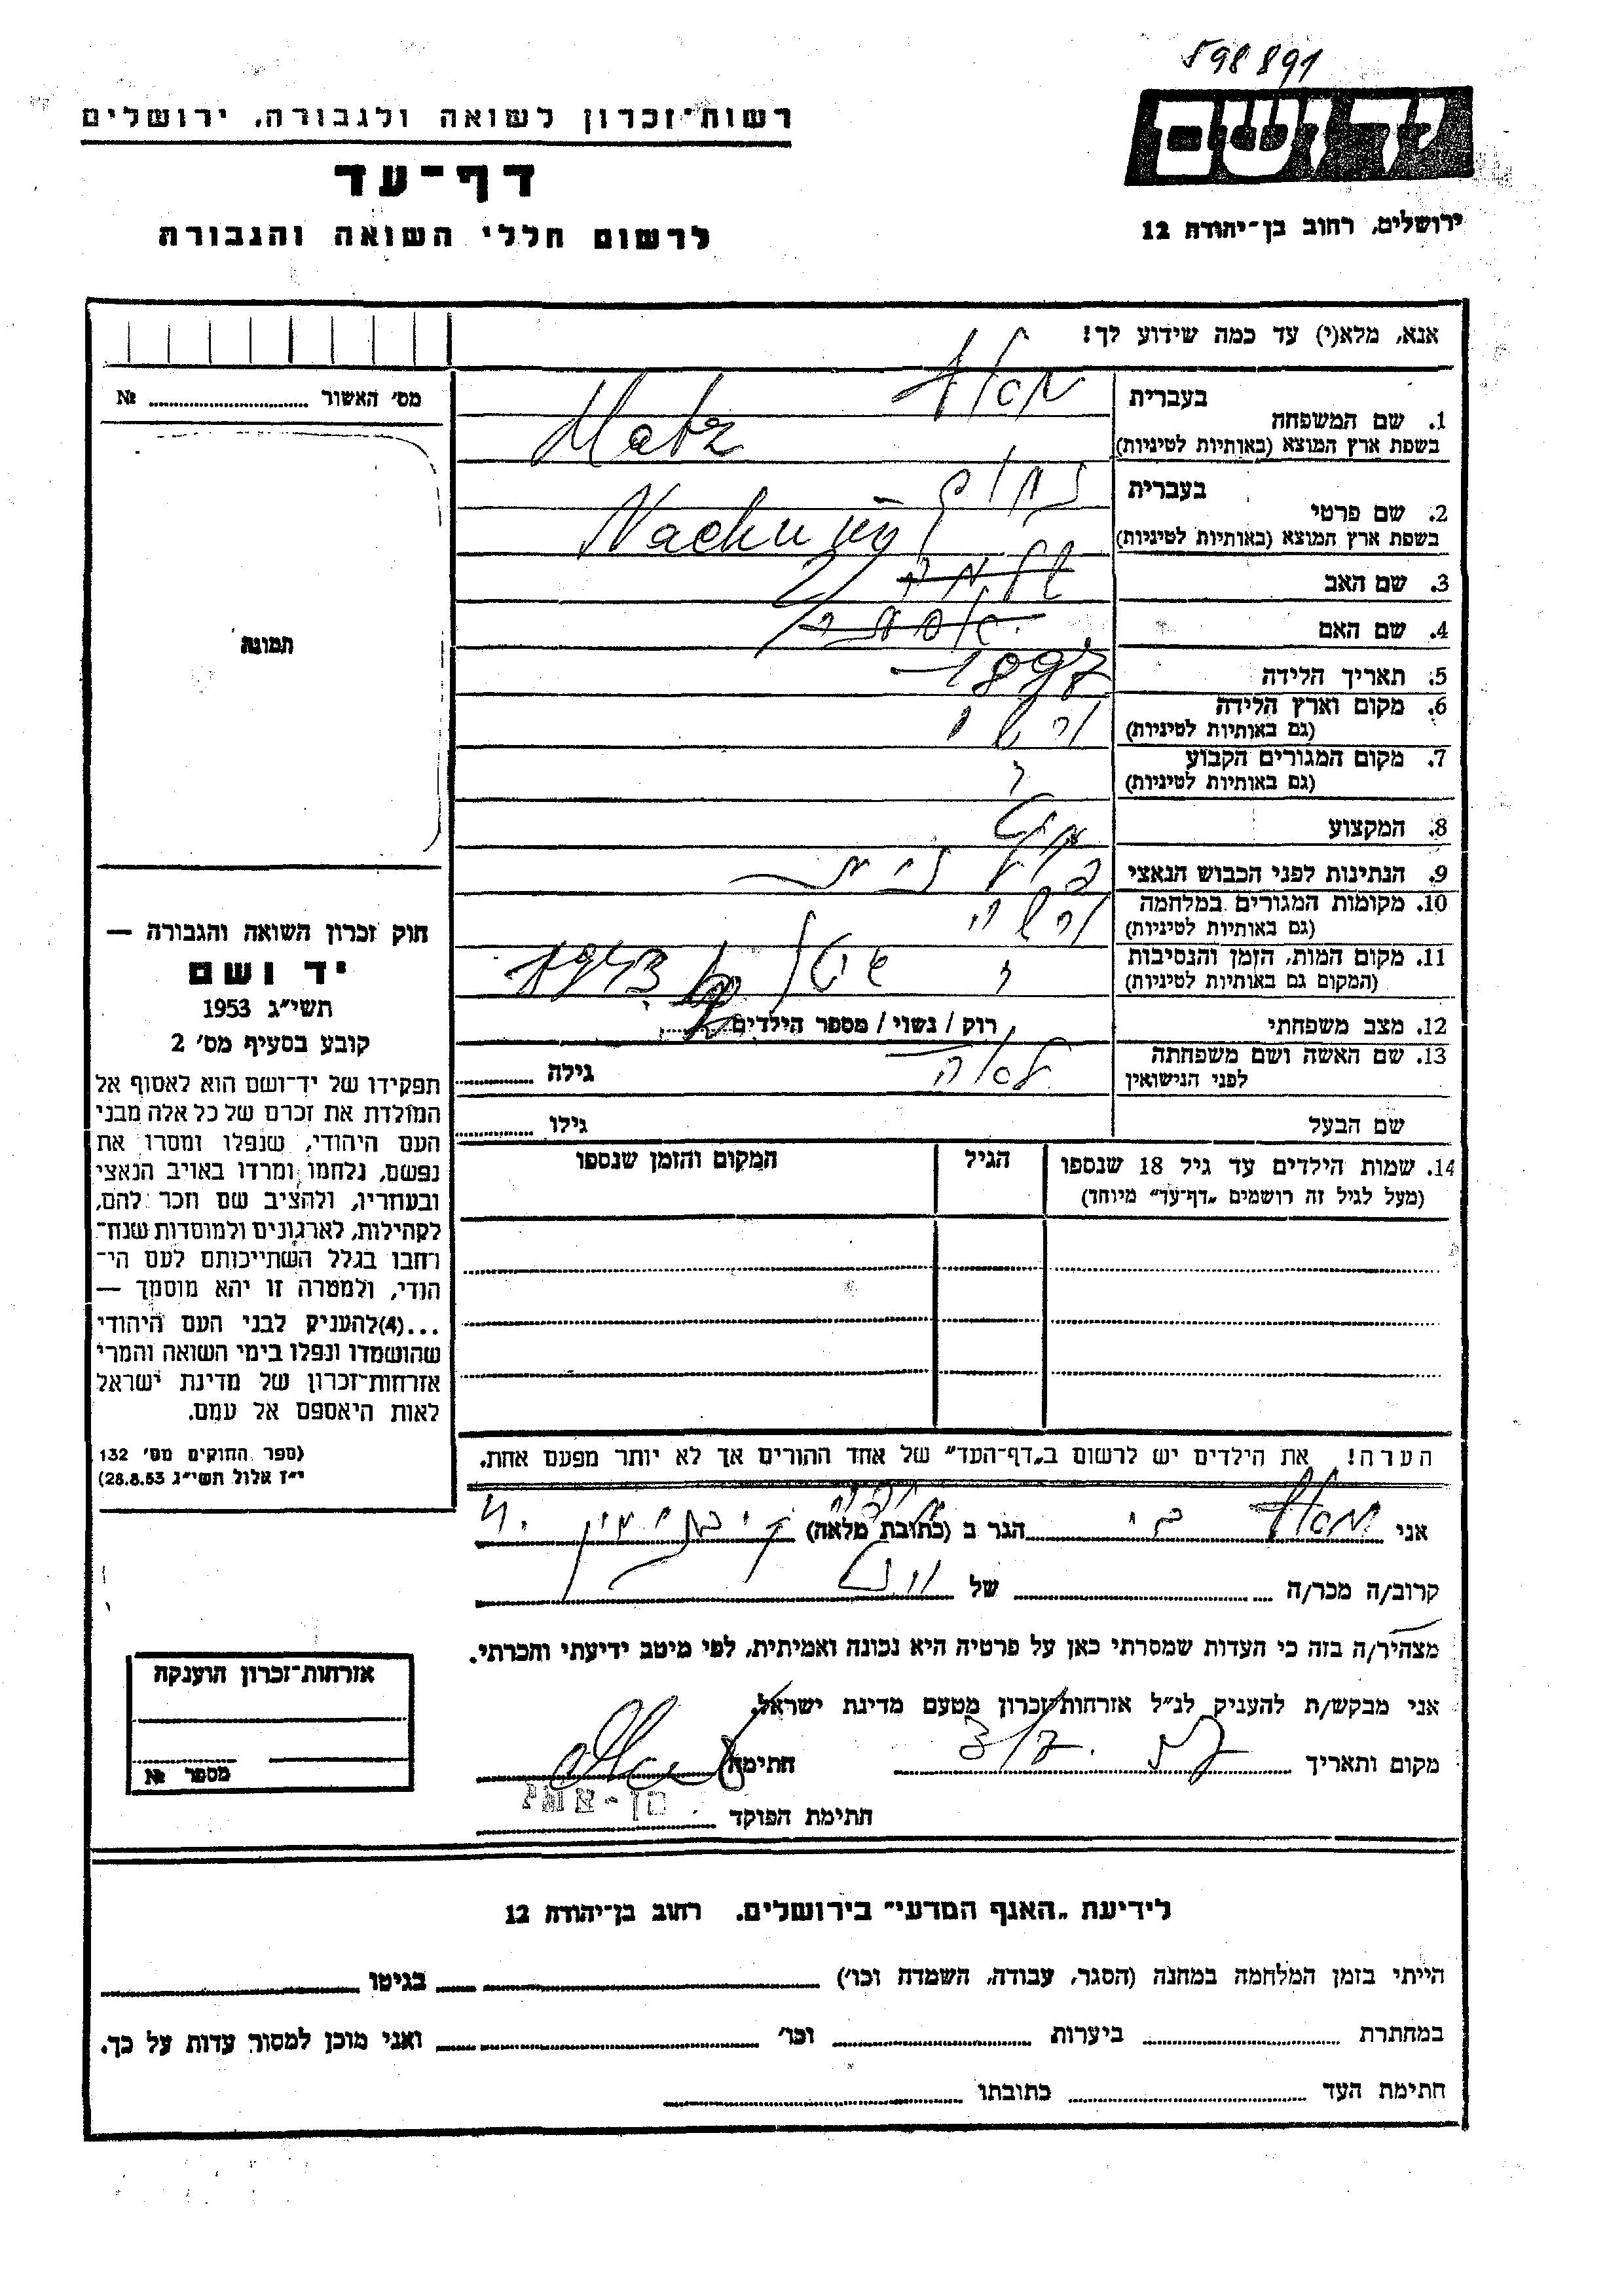 598891
רשות־זכרון לשואה ולגבורה, ירושלים
יד ושם
דף־עד
ירושלים, רחוב בן־יהודה 12
לרשום חללי השואה והגבורה
אנא, מלא(י) עד כמה שידוע לך!
מס' האשור №
1. שם המשפחה
בעברית
בשפת ארץ המוצא (באותיות לטיניות) Matz
2. שם פרטי
בעברית נחום
בשפת ארץ המוצא (באותיות לטיניות) Nachum
3. שם האב שלמה
4. שם האם
5. תאריך הלידה 1897
6. מקום וארץ הלידה ורשה
(גם באותיות לטיניות)
7. מקום המגורים הקבוע
(גם באותיות לטיניות)
8. המקצוע
9. הנתינות לפני הכבוש הנאצי פולנית
10. מקומות המגורים במלחמה ורשה
(גם באותיות לטיניות)
11. מקום המות, הזמן והנסיבות 1943
(המקום גם באותיות לטיניות)
12. מצב משפחתי רוק / נשוי / מספר הילדים
13. שם האשה ושם משפחתה לאה גילה
לפני הנישואין
שם הבעל גילו
14. שמות הילדים עד גיל 18 שנספו הגיל המקום והזמן שנספו
(מעל לגיל זה רושמים „דף־עד" מיוחד)
תמונה
חוק זכרון השואה והגבורה —
יד ושם
תשי"ג 1953
קובע בסעיף מס' 2
תפקידו של יד־ושם הוא לאסוף אל
המולדת את זכרם של כל אלה מבני
העם היהודי, שנפלו ומסרו את
נפשם, נלחמו ומרדו באויב הנאצי
ובעוזריו, ולהציב שם וזכר להם,
לקהילות, לארגונים ולמוסדות שנח־
רחבו בגלל השתייכותם לעם הי־
הודי, ולמטרה זו יהא מוסמך —
...(4)להעניק לבני העם היהודי
שהושמדו ונפלו בימי השואה והמרי
אזרחות־זכרון של מדינת ישראל
לאות היאספם אל עמם.
(ספר החוקים מס' 132
י"ז אלול תשי"ג 28.8.53)
הערה! את הילדים יש לרשום ב„דף־העד" של אחד ההורים אך לא יותר מפעם אחת.
אני הגר ב (כתובת מלאה)
קרוב/ה מכר/ה של
מצהיר/ה בזה כי העדות שמסרתי כאן על פרטיה היא נכונה ואמיתית, לפי מיטב ידיעתי והכרתי.
אני מבקש/ת להעניק לנ"ל אזרחות־זכרון מטעם מדינת ישראל.
מקום ותאריך חתימה
חתימת הפוקד
אזרחות־זכרון הוענקה
מספר №
לידיעת „האגף המדעי" בירושלים. רחוב בן־יהודה 12
הייתי בזמן המלחמה במחנה (הסגר, עבודה, השמדה וכו') בגיטו
במחתרת ביערות וכו' ואני מוכן למסור עדות על כך.
חתימת העד כתובתו